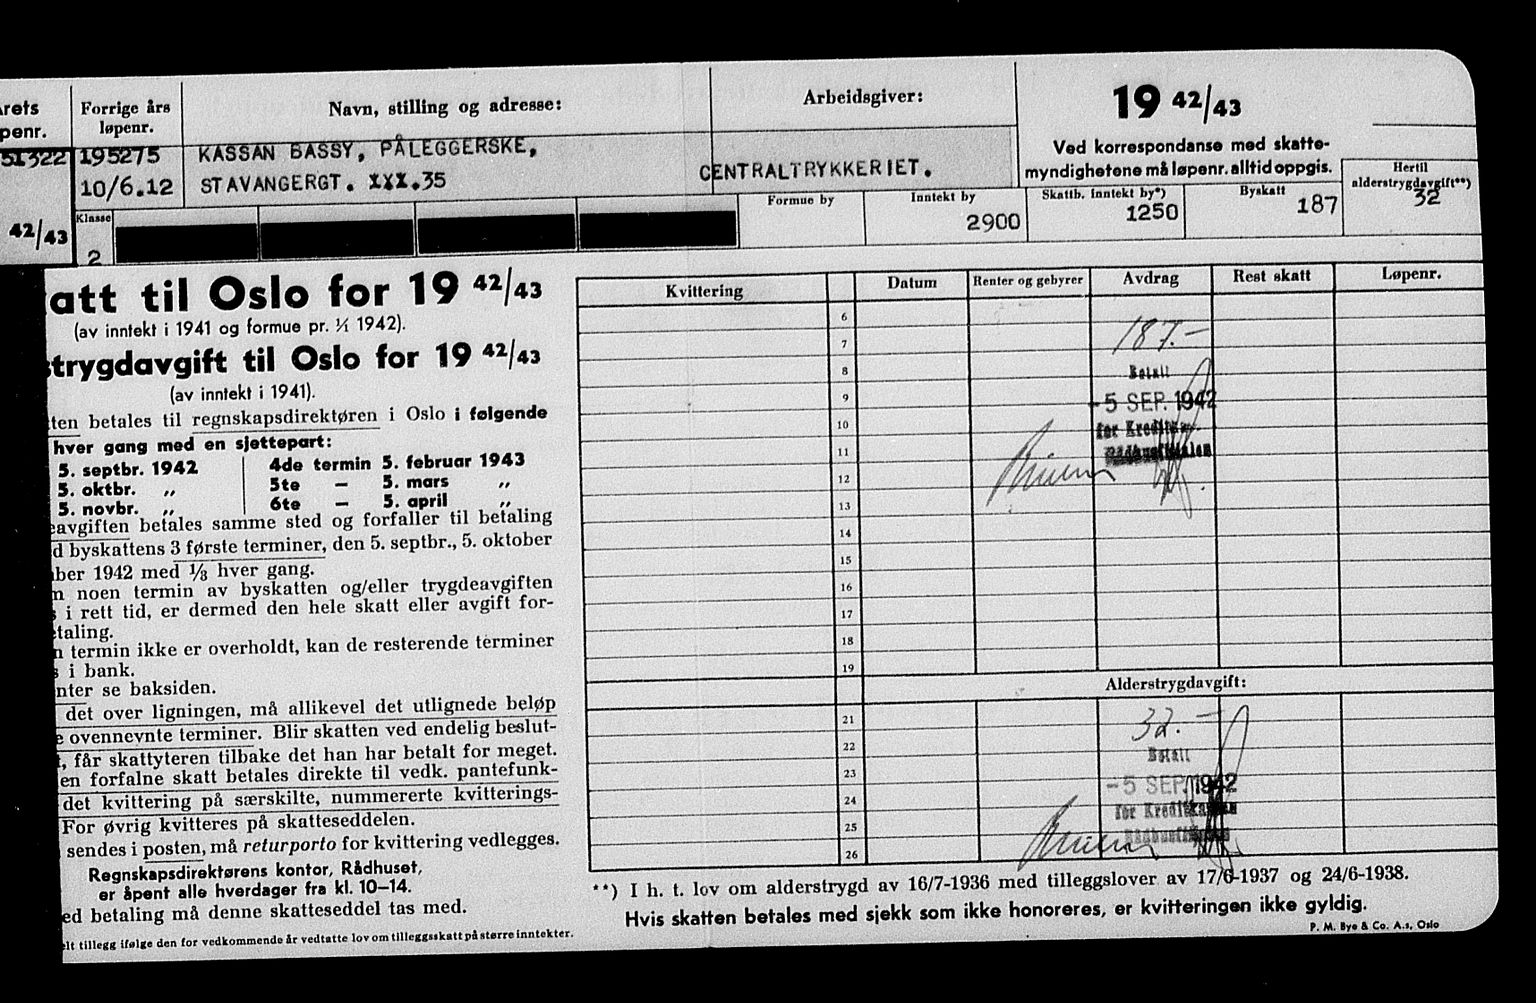 Årets
Forrige års
løpenr.
Navn, stilling og adresse:
Arbeidsgiver:
19 42/43
51322
195275
10/6.12
KASSAN BASSY, PÅLEGGERSKE,
STAVANGERGT. XXX.35
CENTRALTRYKKERIET.
Ved korrespondanse med skatte-
myndighetene må løpenr. alltid oppgis.
42/43
Klasse
2
Formue by
Inntekt by
2900
Skattb. inntekt by*)
1250
Byskatt
187
Hertil
alderstrygdavgift**)
32
att til Oslo for 19 42/43
(av inntekt i 1941 og formue pr. 1/1 1942).
trygdavgift til Oslo for 19 42/43
(av inntekt i 1941).
ten betales til regnskapsdirektøren i Oslo i følgende
hver gang med en sjettepart:
5. septbr. 1942 4de termin 5. februar 1943
5. oktbr. „ 5te — 5. mars „
5. novbr. „ 6te — 5. april „
eavgiften betales samme sted og forfaller til betaling
d byskattens 3 første terminer, den 5. septbr., 5. oktober
ber 1942 med 1/3 hver gang.
noen termin av byskatten og/eller trygdeavgiften
i rett tid, er dermed den hele skatt eller avgift for-
taling.
n termin ikke er overholdt, kan de resterende terminer
i bank.
nter se baksiden.
det over ligningen, må allikevel det utlignede beløp
e ovennevnte terminer. Blir skatten ved endelig beslut-
t, får skattyteren tilbake det han har betalt for meget.
en forfalne skatt betales direkte til vedk. pantefunk-
det kvittering på særskilte, nummererte kvitterings-
For øvrig kvitteres på skatteseddelen.
sendes i posten, må returporto for kvittering vedlegges.
Regnskapsdirektørens kontor, Rådhuset,
er åpent alle hverdager fra kl. 10–14.
ed betaling må denne skatteseddel tas med.
elt tillegg ifølge den for vedkommende år vedtatte lov om tilleggsskatt på større inntekter.
Kvittering
Datum
Renter og gebyrer
Avdrag
Rest skatt
Løpenr.
6
7
187.-
8
Betalt
9
-5 SEP. 1942
10
for Kreditk
11
Rådhusfilialen
12
13
14
15
16
17
18
19
Alderstrygdavgift:
21
32.-
22
Betalt
23
-5 SEP. 1942
24
for Kreditkassen
25
Rådhusfilialen
26
**) I h. t. lov om alderstrygd av 16/7-1936 med tilleggslover av 17/6-1937 og 24/6-1938.
Hvis skatten betales med sjekk som ikke honoreres, er kvitteringen ikke gyldig.
P. M. Bye & Co. A.s, Oslo